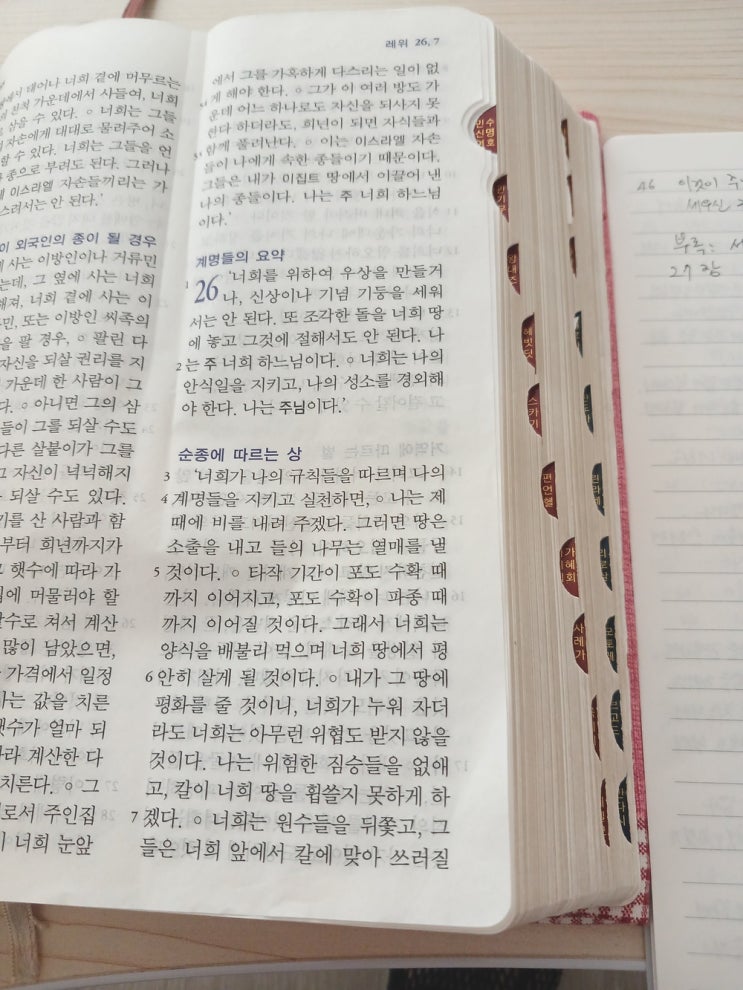 에서 태어나 너희 곁에 머무르는
친척 가운데에서 사들여, 너희
삼을 수 있다. ○ 너희는 그들
자손에게 대대로 물려주어 소
할 수 있다. 너희는 그들을 언
종으로 부려도 된다. 그러나
이스라엘 자손들끼리는 가
스려서는 안 된다.’
이 외국인의 종이 될 경우
사는 이방인이나 거류민
는데, 그 옆에 사는 너희
해져, 너희 곁에 사는 이
민, 또는 이방인 씨족의
을 팔 경우, ○ 팔린 다
자신을 되살 권리를 지
가운데 한 사람이 그
다. ○ 아니면 그의 삼
들이 그를 되살 수도
다른 살붙이가 그를
그 자신이 넉넉해지
되살 수도 있다.
기를 산 사람과 함
부터 희년까지가
햇수에 따라 가
에 머물러야 할
삯수로 쳐서 계산
많이 남았으면,
가격에서 일정
하는 값을 치른
햇수가 얼마 되
따라 계산한 다
치른다. ○ 그
로서 주인집
너희 눈앞
레위 26, 7
에서 그를 가혹하게 다스리는 일이 없
게 해야 한다. ○ 그가 이 여러 방도 가
운데 어느 하나로도 자신을 되사지 못
한다 하더라도, 희년이 되면 자식들과
함께 풀려난다. ○ 이는 이스라엘 자손
들이 나에게 속한 종들이기 때문이다.
그들은 내가 이집트 땅에서 이끌어 낸
나의 종들이다. 나는 주 너희 하느님
이다.’
계명들의 요약
1 26 ‘너희를 위하여 우상을 만들거
나, 신상이나 기념 기둥을 세워
서는 안 된다. 또 조각한 돌을 너희 땅
에 놓고 그것에 절해서도 안 된다. 나
2 는 주 너희 하느님이다. ○ 너희는 나의
안식일을 지키고, 나의 성소를 경외해
야 한다. 나는 주님이다.’
순종에 따르는 상
3 ‘너희가 나의 규칙들을 따르며 나의
4 계명들을 지키고 실천하면, ○ 나는 제
때에 비를 내려 주겠다. 그러면 땅은
소출을 내고 들의 나무는 열매를 낼
5 것이다. ○ 타작 기간이 포도 수확 때
까지 이어지고, 포도 수확이 파종 때
까지 이어질 것이다. 그래서 너희는
양식을 배불리 먹으며 너희 땅에서 평
6 안히 살게 될 것이다. ○ 내가 그 땅에
평화를 줄 것이니, 너희가 누워 자더
라도 너희는 아무런 위협도 받지 않을
것이다. 나는 위험한 짐승들을 없애
고, 칼이 너희 땅을 휩쓸지 못하게 하
7 겠다. ○ 너희는 원수들을 뒤쫓고, 그
들은 너희 앞에서 칼에 맞아 쓰러질
민수
신명
여호
판기
스카기
편언헬
가
혜회
사레가
46 이것이 주
세우신
부록:
27장